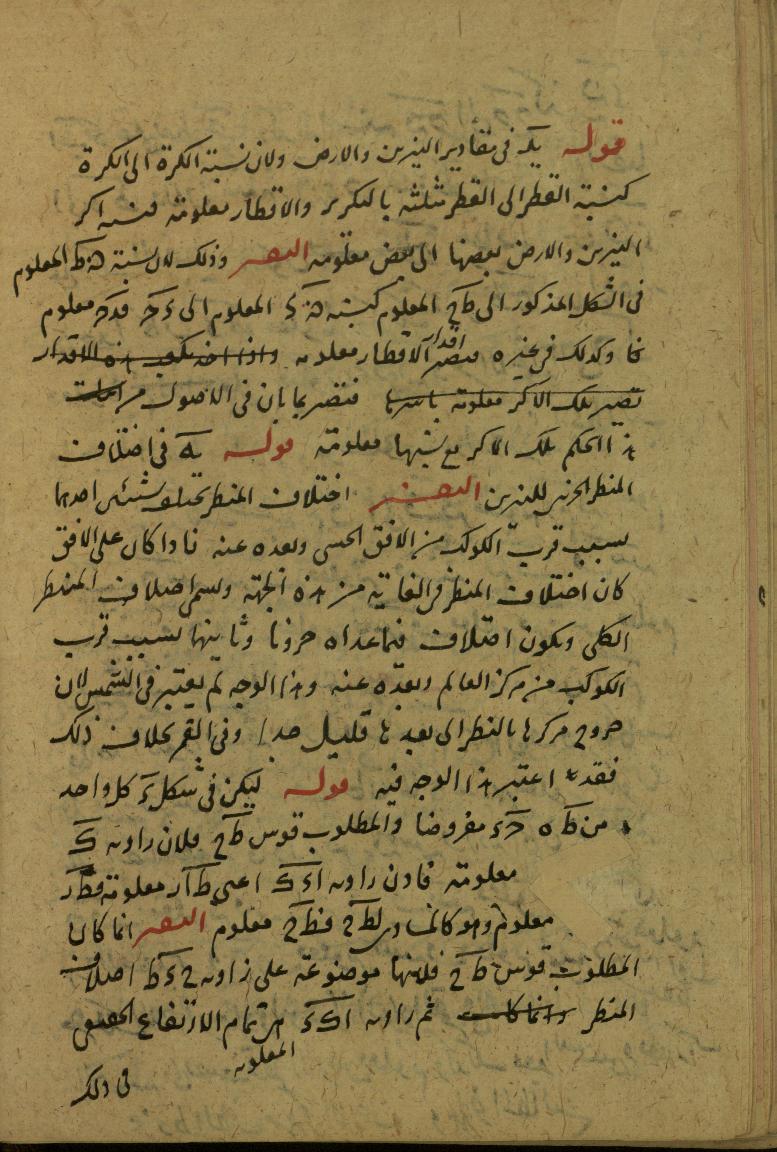 قوله يد في مقادير النيرين والارض ولان نسبة الكرة الى الكرة
كنسبة القطر الى القطر مثلثة بالتكرير والاقطار معلومة فنسبة اكر
النيرين والارض بعضها الى بعض معلومة التفسير وذلك لان نسبة هط المعلوم
في الشكل المذكور الى طح المعلوم كنسبة هء المعلوم الى ءحر معلوم
وكذلك في غيره فتصير اقدار الاقطار معلومة واذا اخذ تكون هذه الاقدار
تصير تلك الاكر معلومة باسرها فتصير بما بان في الاصول من
هذا الحكم تلك الاكر مع نسبها معلومة قوله يه في اختلاف
المنظر الجزئى للنيرين التفسير اختلاف المنظر يختلف بشيئين احدهما
بسبب قرب الكوكب من الافق الحسى وبعده عنه فاذا كان على الافق
كان اختلاف المنظر في الغاية من هذه الجهة ويسمى اختلاف المنظر
الكلى ويكون اختلاف فيما عداه جزويا وثانيها بسبب قرب
الكوكب من مركز العالم وبعده عنه وهذا الوجه لم يعتبر في الشمس لان
خروج مركزها بالنظر الى بعدها قليل جدا وفي القمر بخلاف ذلك
فقد اعتبر هذا الوجه فيه قوله ليكن في شكل كل واحد
من طه حء مفروضا والمطلوب قوس طح فلان زاوية ك
معلومة فاذن زاوية اءك اعنى طار معلومة فطر
معلوم وهو كالمساوى لطح فطح معلوم التفسير انما كان
المطلوب قوس طح فلانها موضوعة على زاوية حءط اختلاف
المنظر وانما كانت ثم زاوية اكء هي تمام الارتفاع الحقيقى
المعلوم
في ذلك